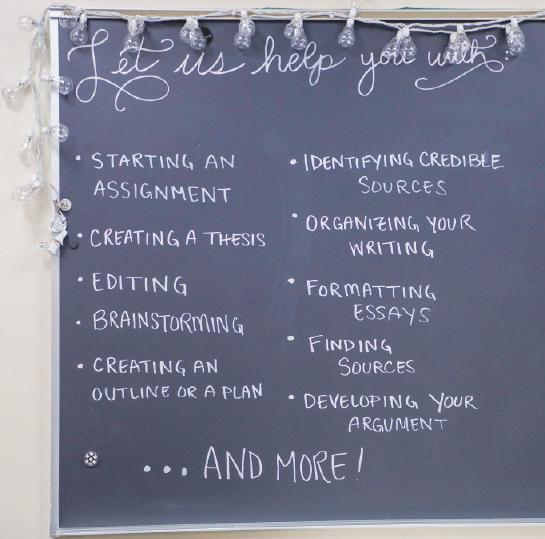 Let us help you with:
• STARTING AN
ASSIGNMENT
• CREATING A THESIS
• EDITING
• BRAINSTORMING
• CREATING AN
OUTLINE OR A PLAN
• IDENTIFYING CREDIBLE
SOURCES
• ORGANIZING YOUR
WRITING
• FORMATTING
ESSAYS
• FINDING
SOURCES
• DEVELOPING YOUR
ARGUMENT
... AND MORE!